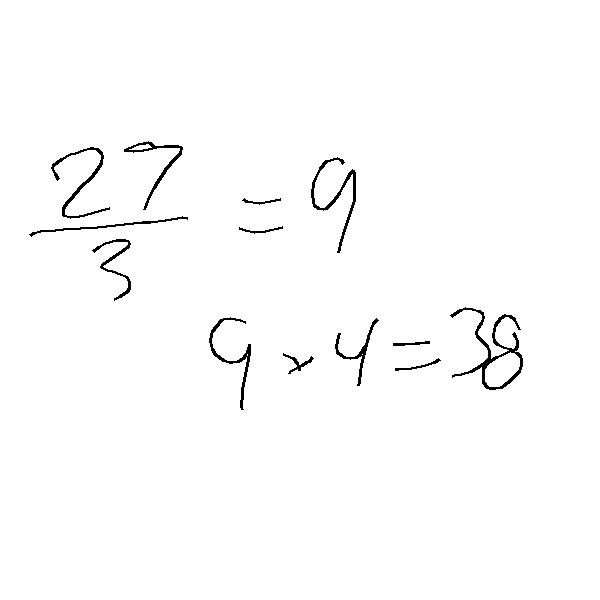 27/3 = 9
9 x 4 = 38